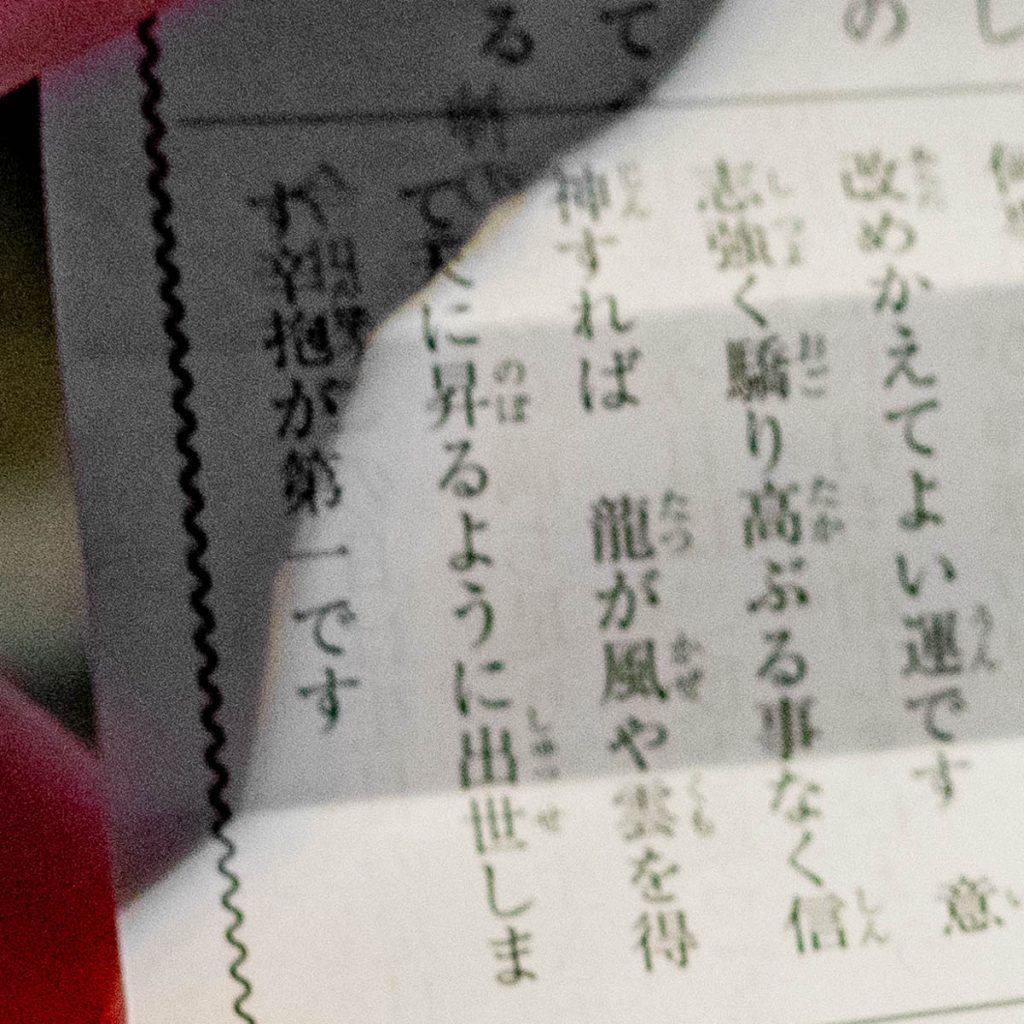 し
の
て
る
改めかえてよい運です 意
志強く驕り高ぶる事なく信
神すれば 龍が風や雲を得
て天に昇るように出世しま
す 辛抱が第一です